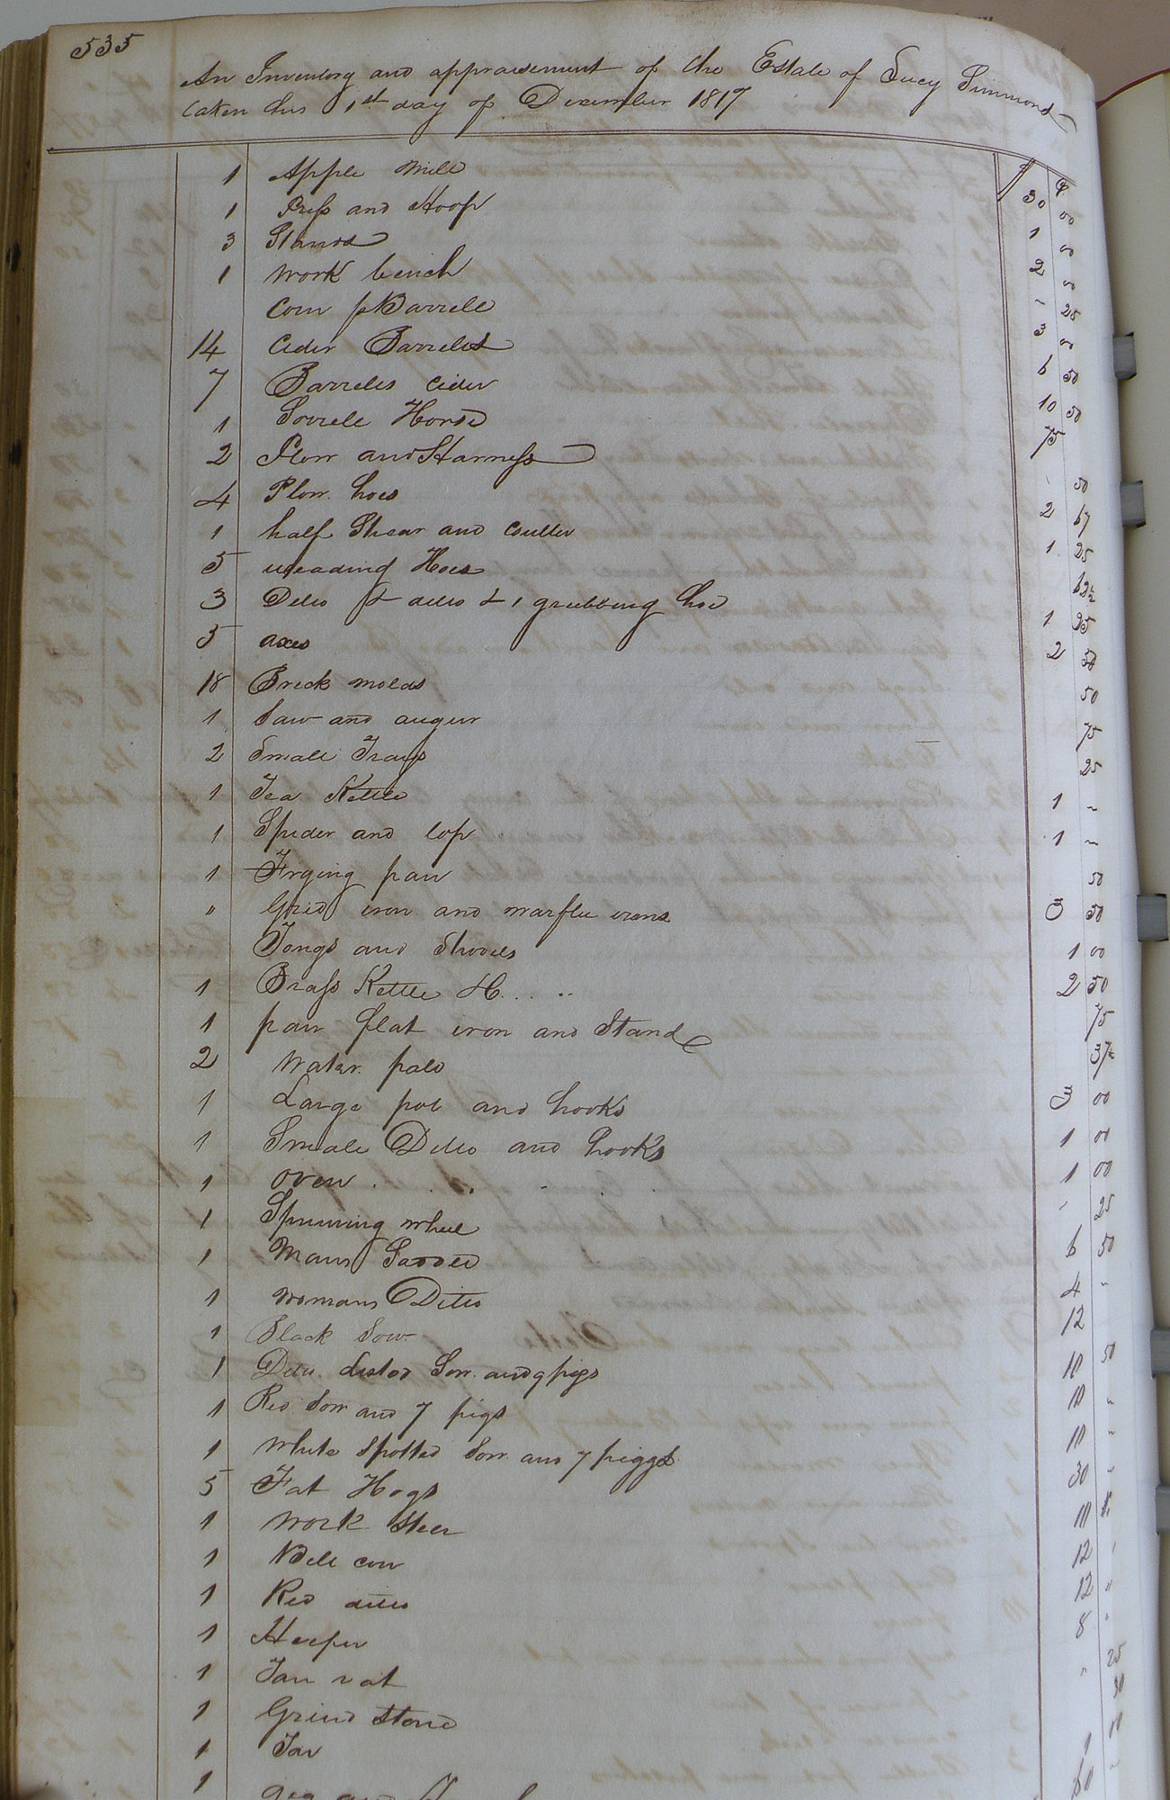 535
An Inventory and appraisement of the Estate of Lucy Simmons
taken this 1st day of December 1817
$ ¢
1 Apple Mill 30 00
1 Press and Hoop 1 00
3 Stands 2 00
1 Work bench - 25
Corn p Barrell 3 00
14 Cider Barrells 6 50
7 Barrells cider 10 50
1 Sorrell Horse 75
2 Plow and Harness - 50
4 Plow hoes 2 67
1 half Shear and coulter 1 25
5 weading Hoes 62½
3 Ditto & ditto & 1 grubbing hoe 1 25
5 axes 2 50
18 Brick molds 50
1 Saw and augur 75
2 Small Trays 25
1 Tea Kettle 1 -
1 Spider and top 1 -
1 Frying pan 50
" Grid iron and waffle irons 3 50
Tongs and Shovels 1 00
1 Brass Kettle H.... 2 50
1 pair flat iron and Stand 75
2 Water pals 37½
1 Large pot and hooks 3 00
1 Smale Ditto and hooks 1 00
1 oven . . . . . 1 00
1 Spinning wheel - 25
1 Mans Saddle 6 50
1 Womans Ditto 4 -
1 Black Sow 12
1 Ditto listed Sow and 9 pigs 10 50
1 Red Sow and 7 pigs 10 "
1 White Spotted Sow and 7 piggs 10 "
5 Fat Hogs 30 "
1 Work Steer 10
1 Bell cow 12 "
1 Red ditto 12 "
1 Heifer 8 "
1 Tan vat " 25
1 Grind Stone 50
1 Jar
1 gig and